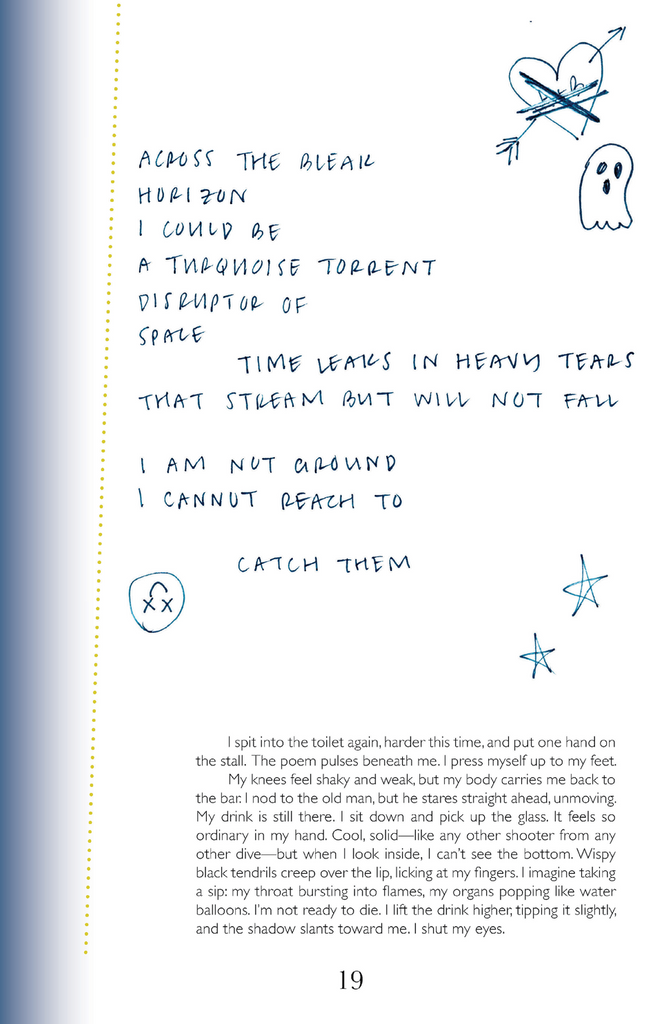 ACROSS THE BLEAK
HORIZON
I COULD BE
A TURQUOISE TORRENT
DISRUPTOR OF
SPACE
TIME LEAKS IN HEAVY TEARS
THAT STREAM BUT WILL NOT FALL
I AM NOT GROUND
I CANNOT REACH TO
CATCH THEM
I spit into the toilet again, harder this time, and put one hand on
the stall. The poem pulses beneath me. I press myself up to my feet.
My knees feel shaky and weak, but my body carries me back to
the bar. I nod to the old man, but he stares straight ahead, unmoving.
My drink is still there. I sit down and pick up the glass. It feels so
ordinary in my hand. Cool, solid—like any other shooter from any
other dive—but when I look inside, I can't see the bottom. Wispy
black tendrils creep over the lip, licking at my fingers. I imagine taking
a sip: my throat bursting into flames, my organs popping like water
balloons. I'm not ready to die. I lift the drink higher, tipping it slightly,
and the shadow slants toward me. I shut my eyes.
19